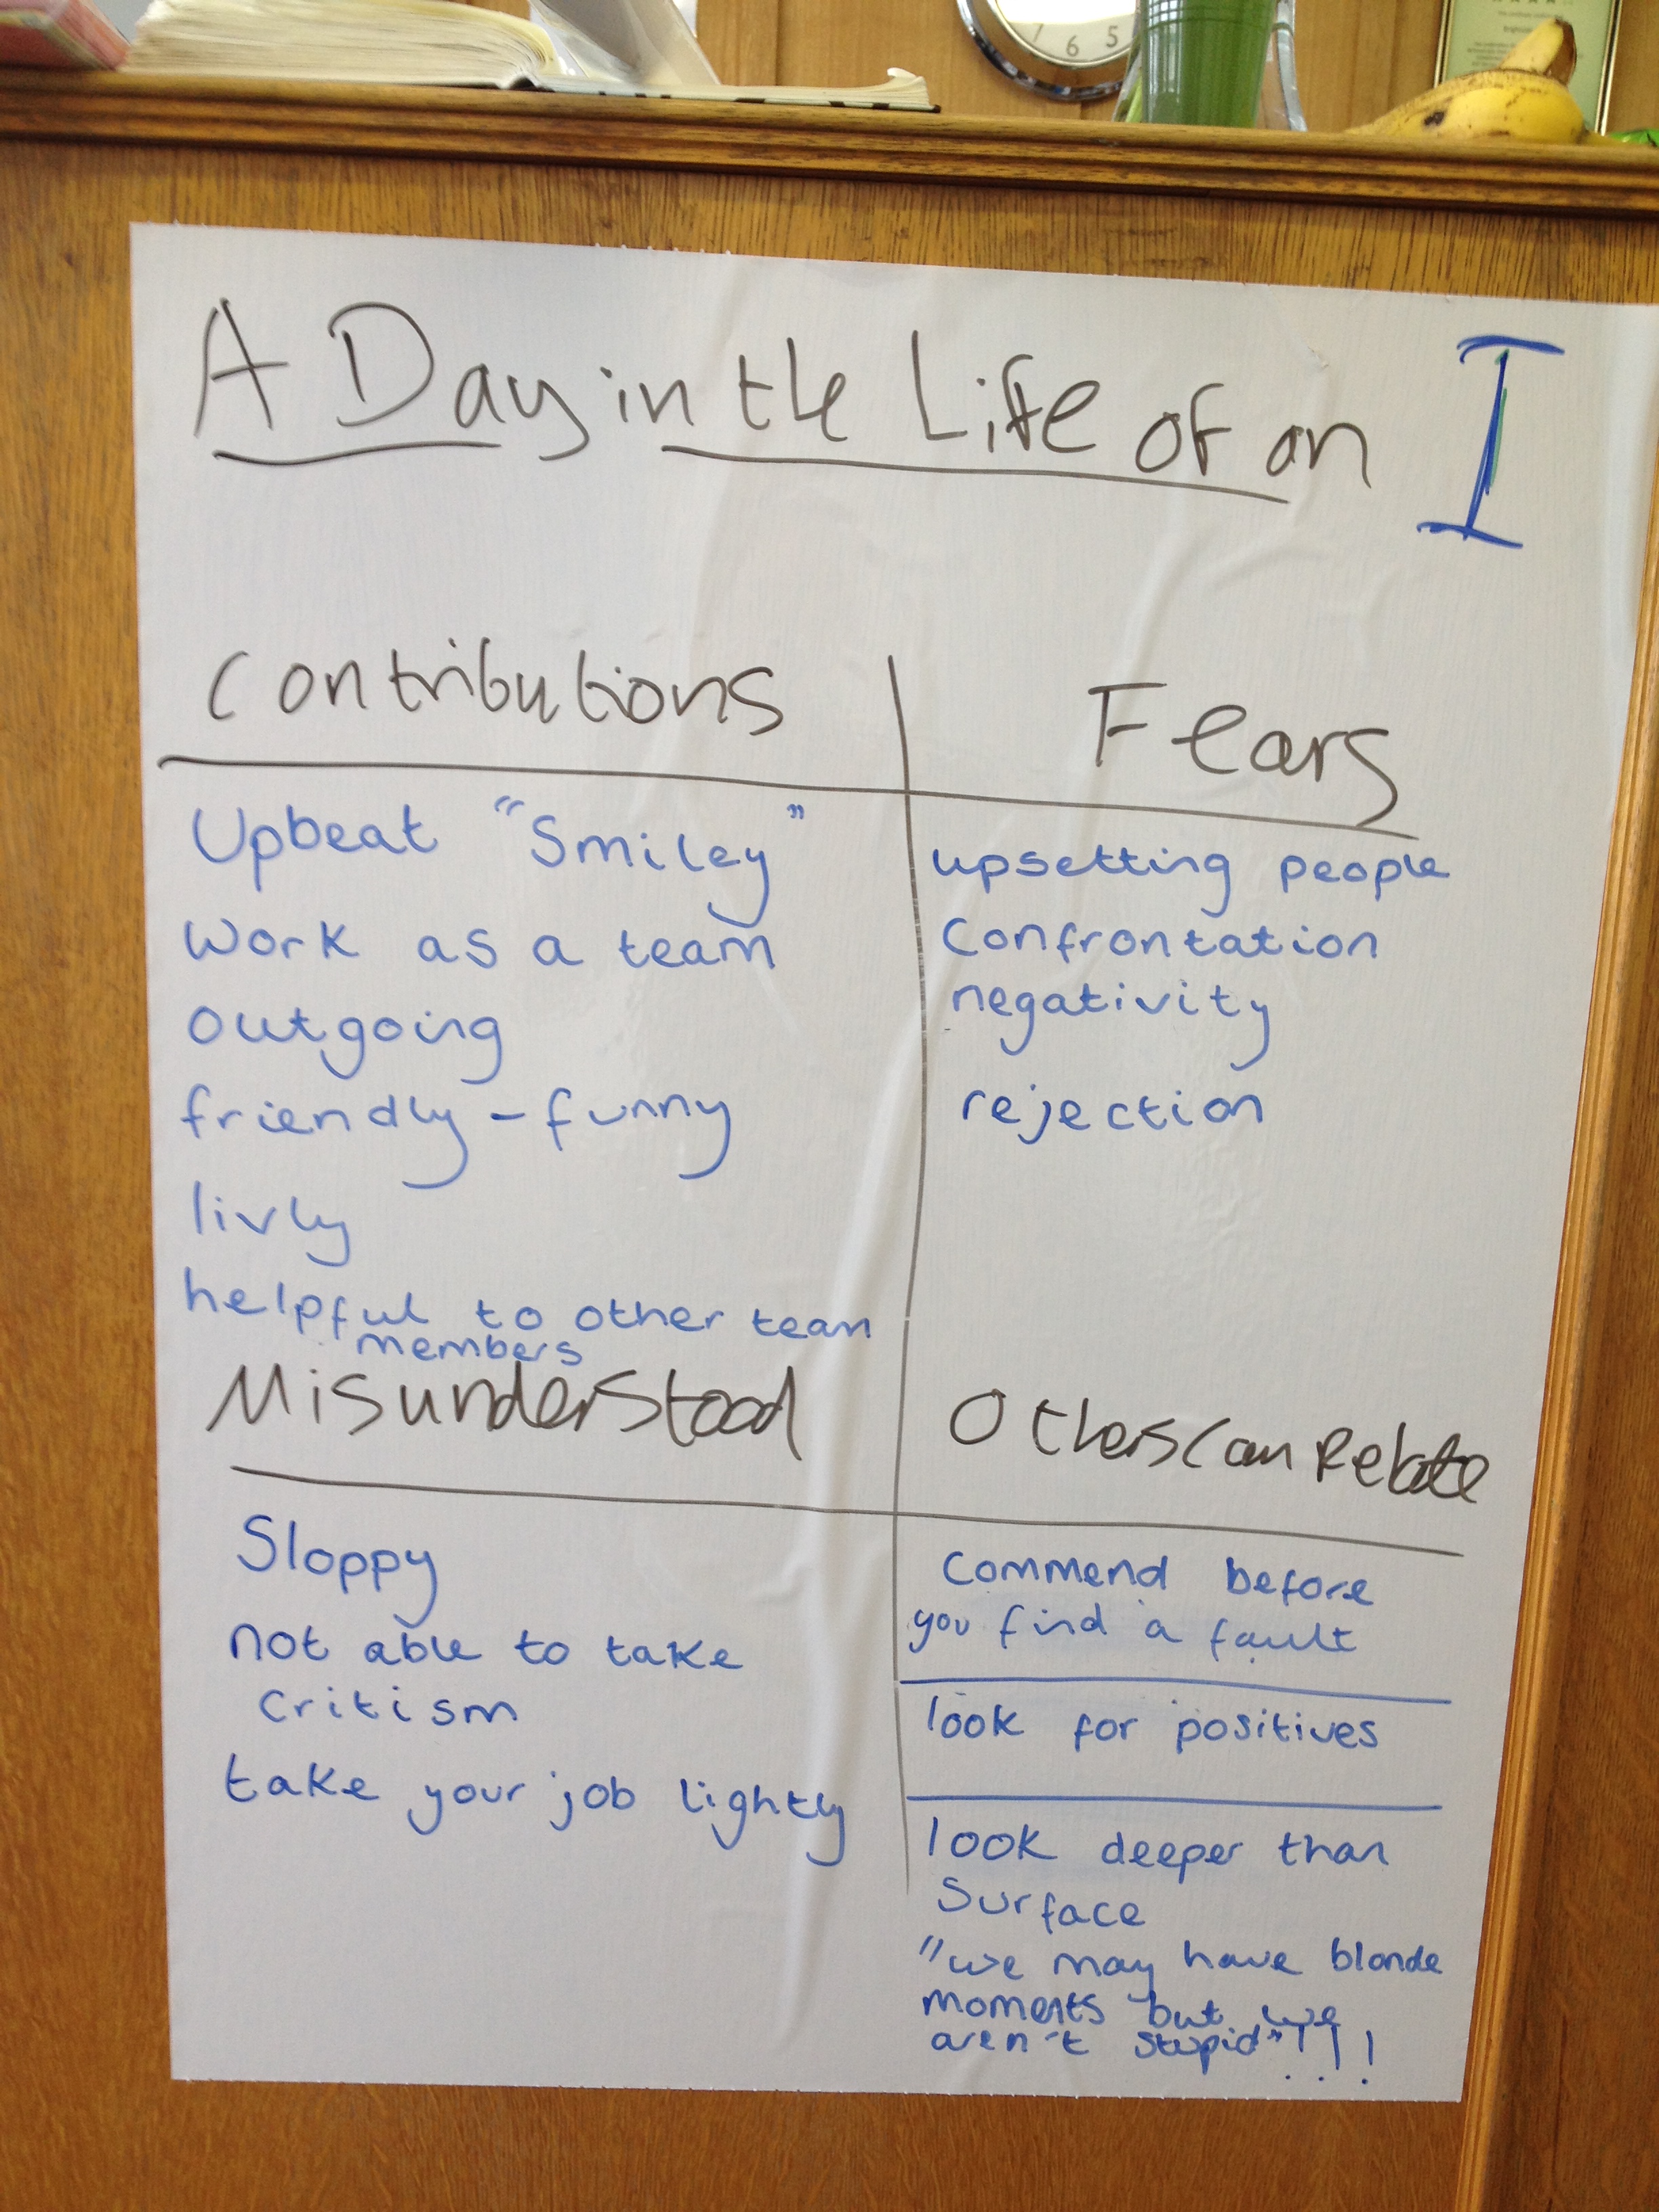 7 6 5
A Day in the Life of an I
Contributions
Upbeat "Smiley"
Work as a team
outgoing
friendly - funny
livly
helpful to other team
members
Fears
upsetting people
Confrontation
negativity
rejection
Misunderstood
Sloppy
not able to take
Critism
take your job lightly
Others Can Relate
Commend before
you find a fault
look for positives
look deeper than
Surface
"we may have blonde
moments but we
aren't stupid"!!!